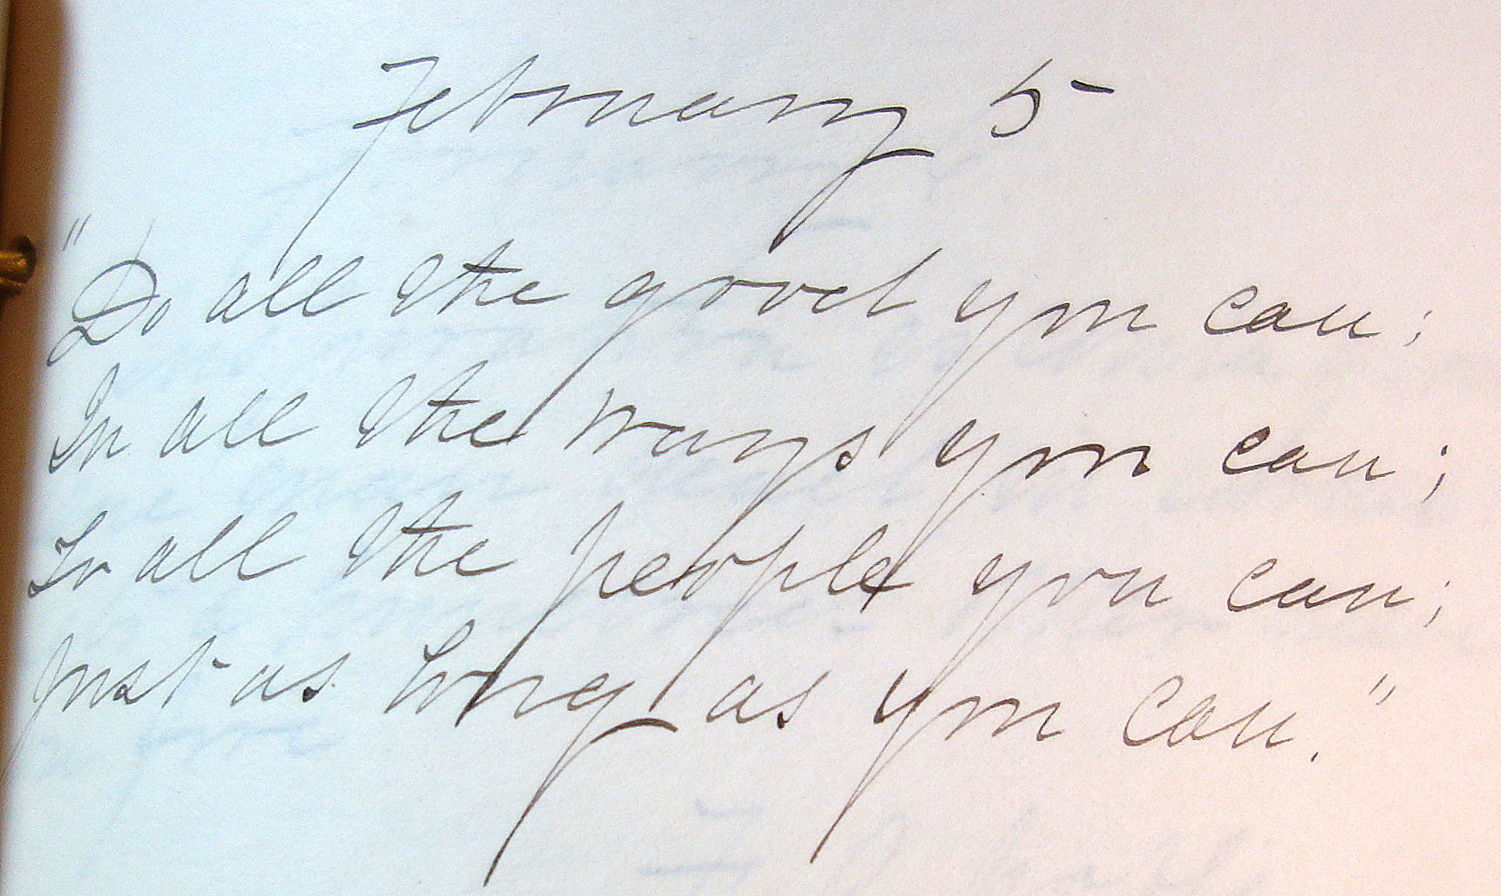 February 5
"Do all the good you can;
In all the ways you can;
To all the people you can;
Just as long as you can."